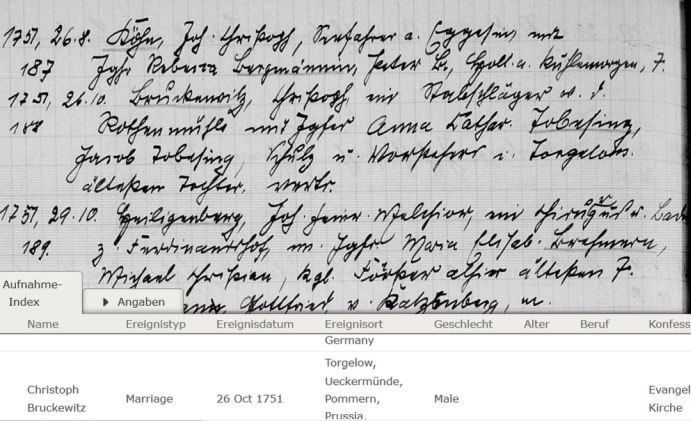 1751, 26.8. Köhn, Joh. Christoph, Seefahrer a. Eggesin mit
187 Jgfr Rebecca Bergmännin, Peter B., Holl. a. Kuhlemorgen, T.
1751, 26.10. Bruckewitz, Christoph, ein Stabschläger v. d.
188 Rothenmühle mit Jgfer Anna Cathar. Tobesing,
Jacob Tobesing, Schulz u. Vorstehers i. Torgelow
ältesten Tochter.
1751, 29.10. Heiligenberg, Joh. Melchior, ein Chirurgus u. Bader
189. z. Ferdinandshof, m. Jgfr Maria Elisab. Bre
Michael Christian, kgl. Förster alhier ältesten T.
Gottfried v.
Aufnahme-
Index
Angaben
Name Ereignistyp Ereignisdatum Ereignisort Geschlecht Alter Beruf Konfess
Germany
Christoph
Bruckewitz
Marriage
26 Oct 1751
Torgelow,
Ueckermünde,
Pommern,
Prussia,
Male
Evangel
Kirche